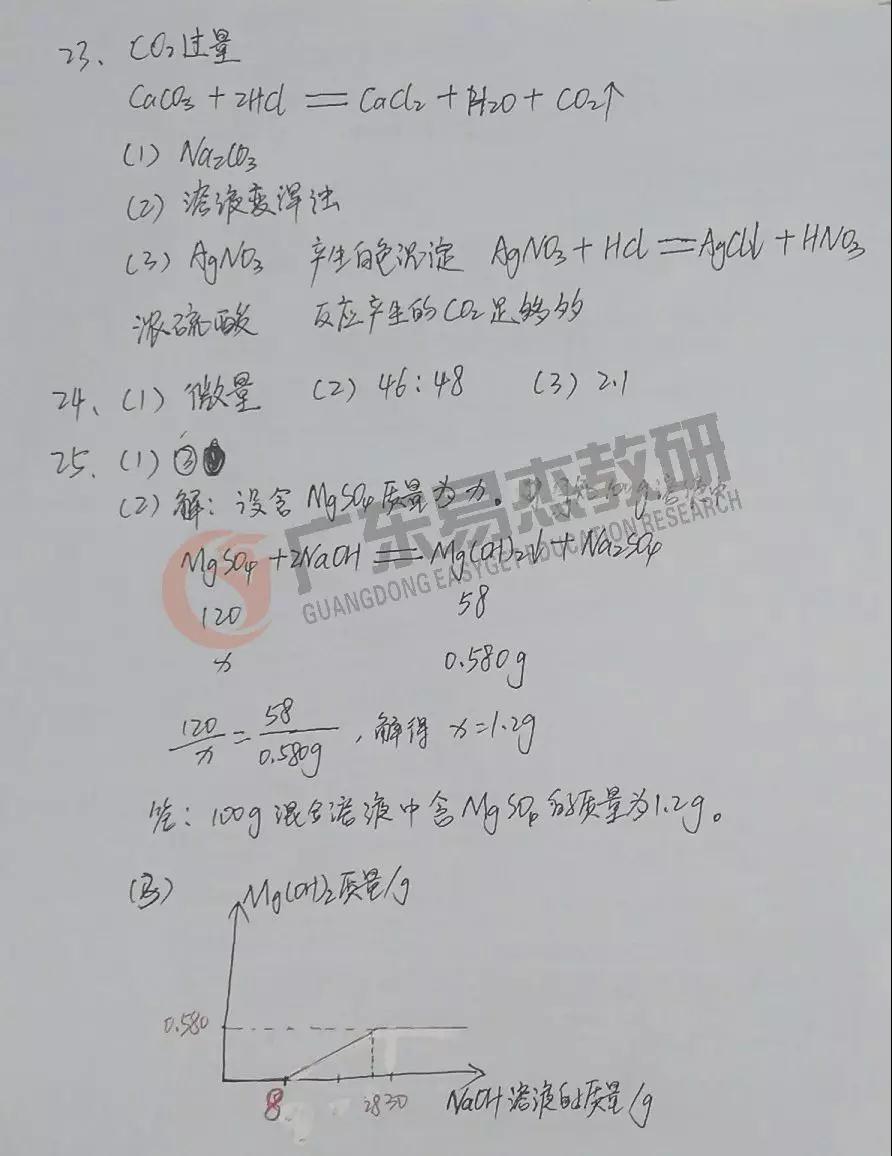 23、CO2过量
CaCO3 + 2HCl == CaCl2 + H2O + CO2↑
(1) Na2CO3
(2) 溶液变浑浊
(3) AgNO3 产生白色沉淀 AgNO3 + HCl == AgCl↓ + HNO3
浓硫酸 反应产生的CO2足够多
24、(1) 微量 (2) 46:48 (3) 2.1
25、(1) ③
(2) 解：设含MgSO4质量为x。
广东易杰教研
GUANGDONG EASYGET EDUCATION RESEARCH
MgSO4 + 2NaOH == Mg(OH)2↓ + Na2SO4
120 58
x 0.580g
120/x = 58/0.580g ，解得 x=1.2g
答：100g混合溶液中含MgSO4的质量为1.2g。
(3) Mg(OH)2质量/g
0.580
8 28 30 NaOH溶液的质量/g